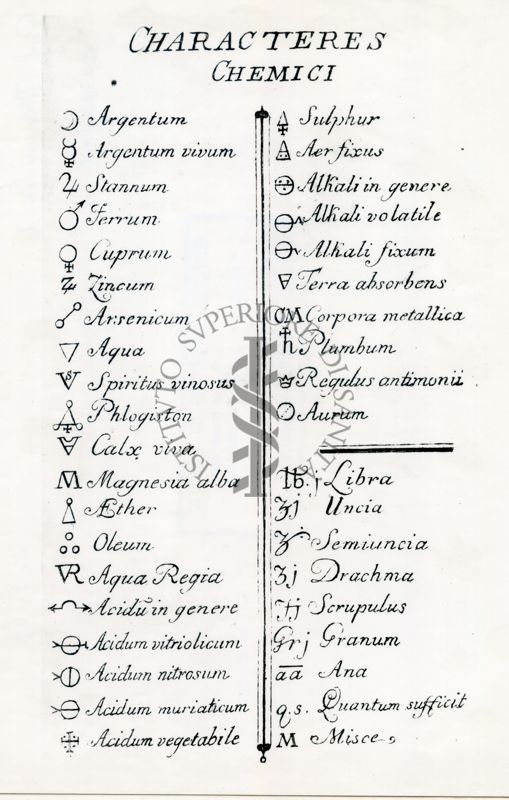 CHARACTERES
CHEMICI
Argentum
Argentum vivum
Stannum
Ferrum
Cuprum
Zincum
Arsenicum
Aqua
Spiritus vinosus
Phlogiston
Calx viva
Magnesia alba
Æther
Oleum
Aqua Regia
Acidū in genere
Acidum vitriolicum
Acidum nitrosum
Acidum muriaticum
Acidum vegetabile
Sulphur
Aer fixus
Alkali in genere
Alkali volatile
Alkali fixum
Terra absorbens
CM Corpora metallica
Plumbum
Regulus antimonii
Aurum
℔.j Libra
℥j Uncia
Semiuncia
ʒj Drachma
℈j Scrupulus
Grj Granum
āā Ana
q.s. Quantum sufficit
M Misce
ISTITVTO SVPERIORE DI SANITÀ